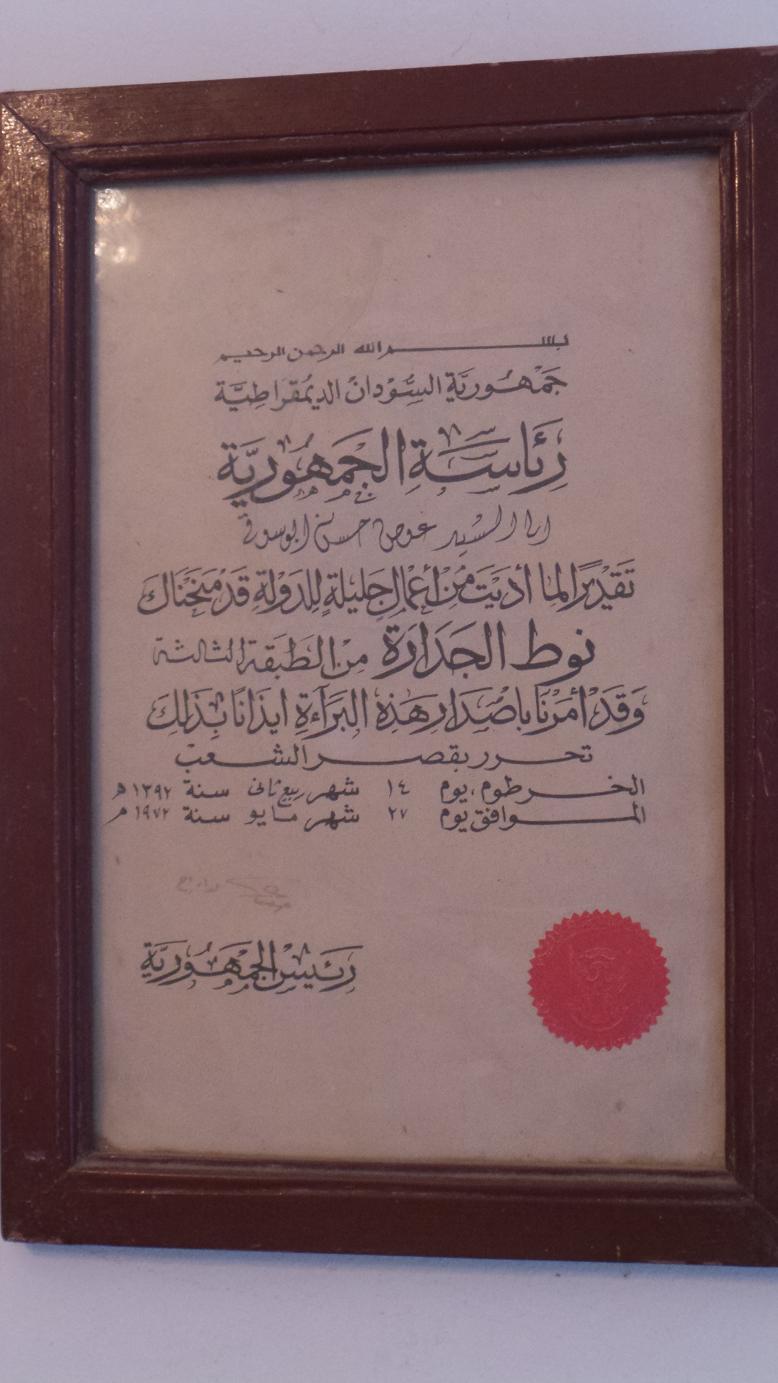 بسم الله الرحمن الرحيم
جَمْهُورِيَّة السُّودَان الديمُقرَاطِيَّة
رِئَاسَة الجَمْهُورِيَّة
الى السيد عوض حسن ابو سوقى
تَقدْيرًا لما أديَتَ مِنْ أعْمَال جَليلَةٍ للدَولَةِ قَدْ مَنَحْنَاكَ
نوط الجَدَارَة مِن الطَبقَة الثالثة
وَقَدْ أمَرْنَا باصْدَار هَذِهِ البَرَآءَةِ ايذَانًا بِذَلِكَ
تحرر بقصر الشعب
الخرطوم، يوم ١٤ شهر ربيع ثانى سنة ١٣٩٢ هـ
الموافق يوم ٢٧ شهر مايو سنة ١٩٧٢ م
رَئيسْ الجَمْهُورِيَّة